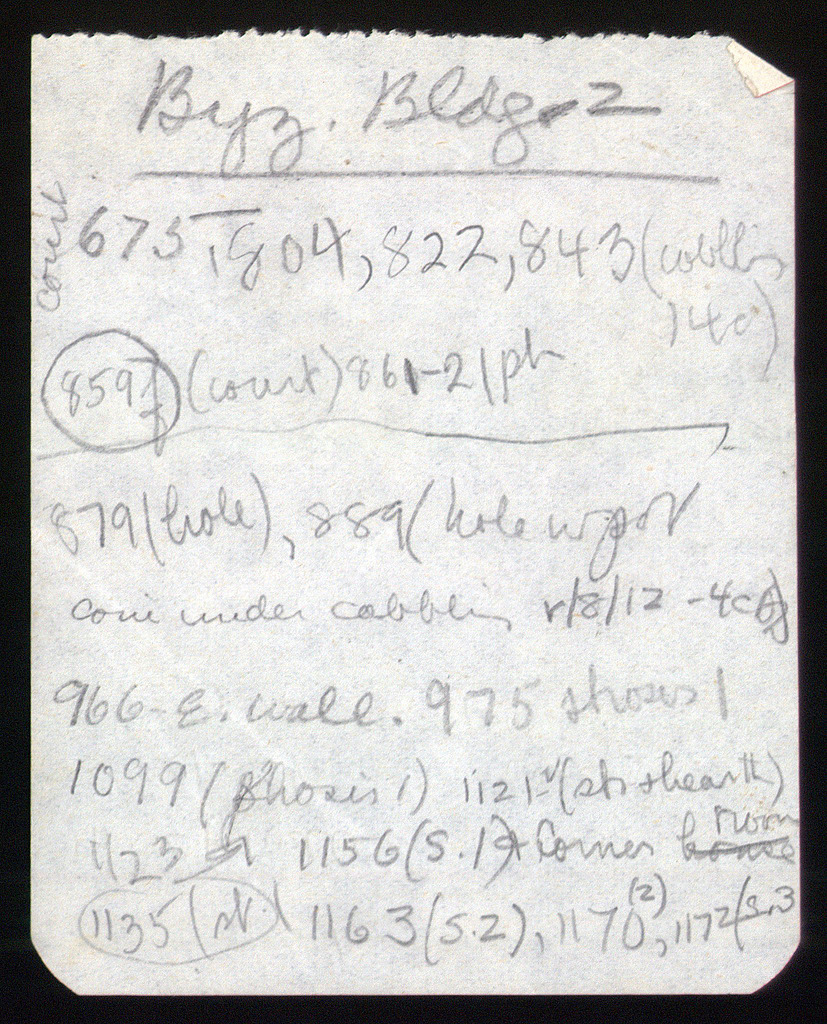 Byz. Bldg. 2
court
675, 804, 822, 843 (cobbling
14c)
859f (court) 861-2 / ph
879 (hole), 889 (hole w/pot
coin under cobbling r/8/12 - 4c
966 - E. wall. 975 stosis 1
1099 (phosis 1) 1121 (st + hearth)
1123 1156 (S.1) + Corner house room
1135 (st.) 1163 (S.2), 1170 (2), 1172 (S.3